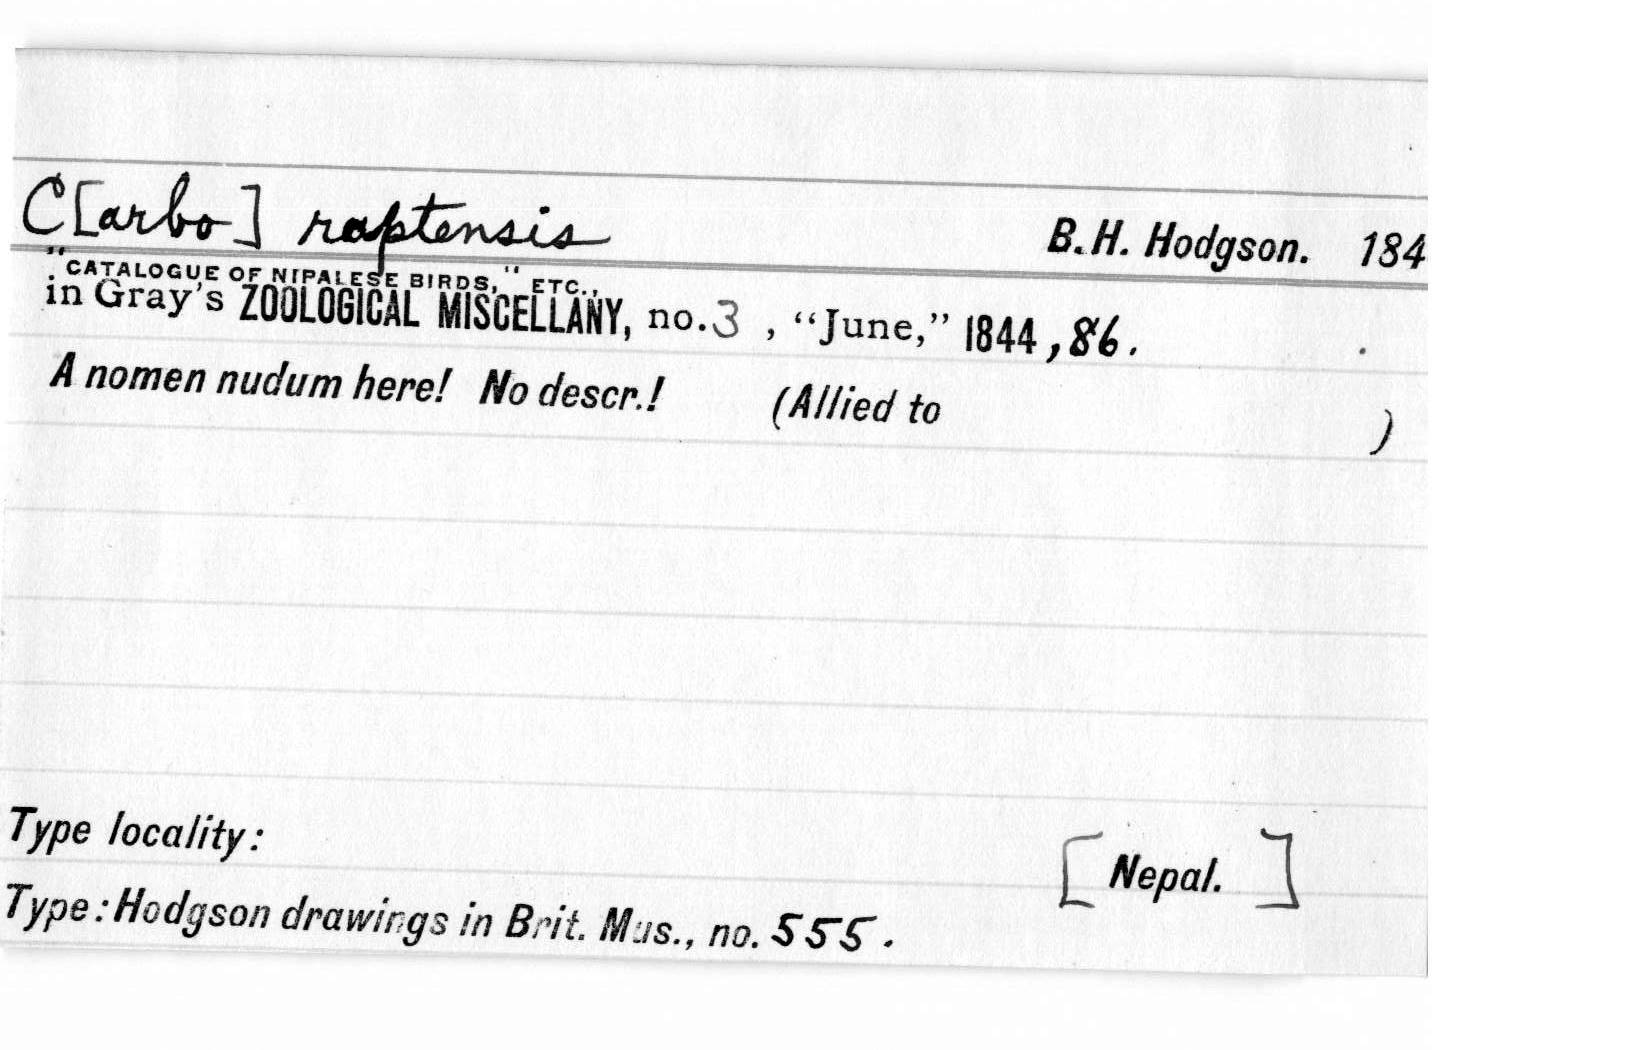 C[arbo] raptensis B.H. Hodgson. 184
"CATALOGUE OF NIPALESE BIRDS," ETC.,
in Gray's ZOOLOGICAL MISCELLANY, no. 3, "June," 1844, 86.
A nomen nudum here! No descr.! (Allied to )
Type locality: [Nepal.]
Type: Hodgson drawings in Brit. Mus., no. 555.